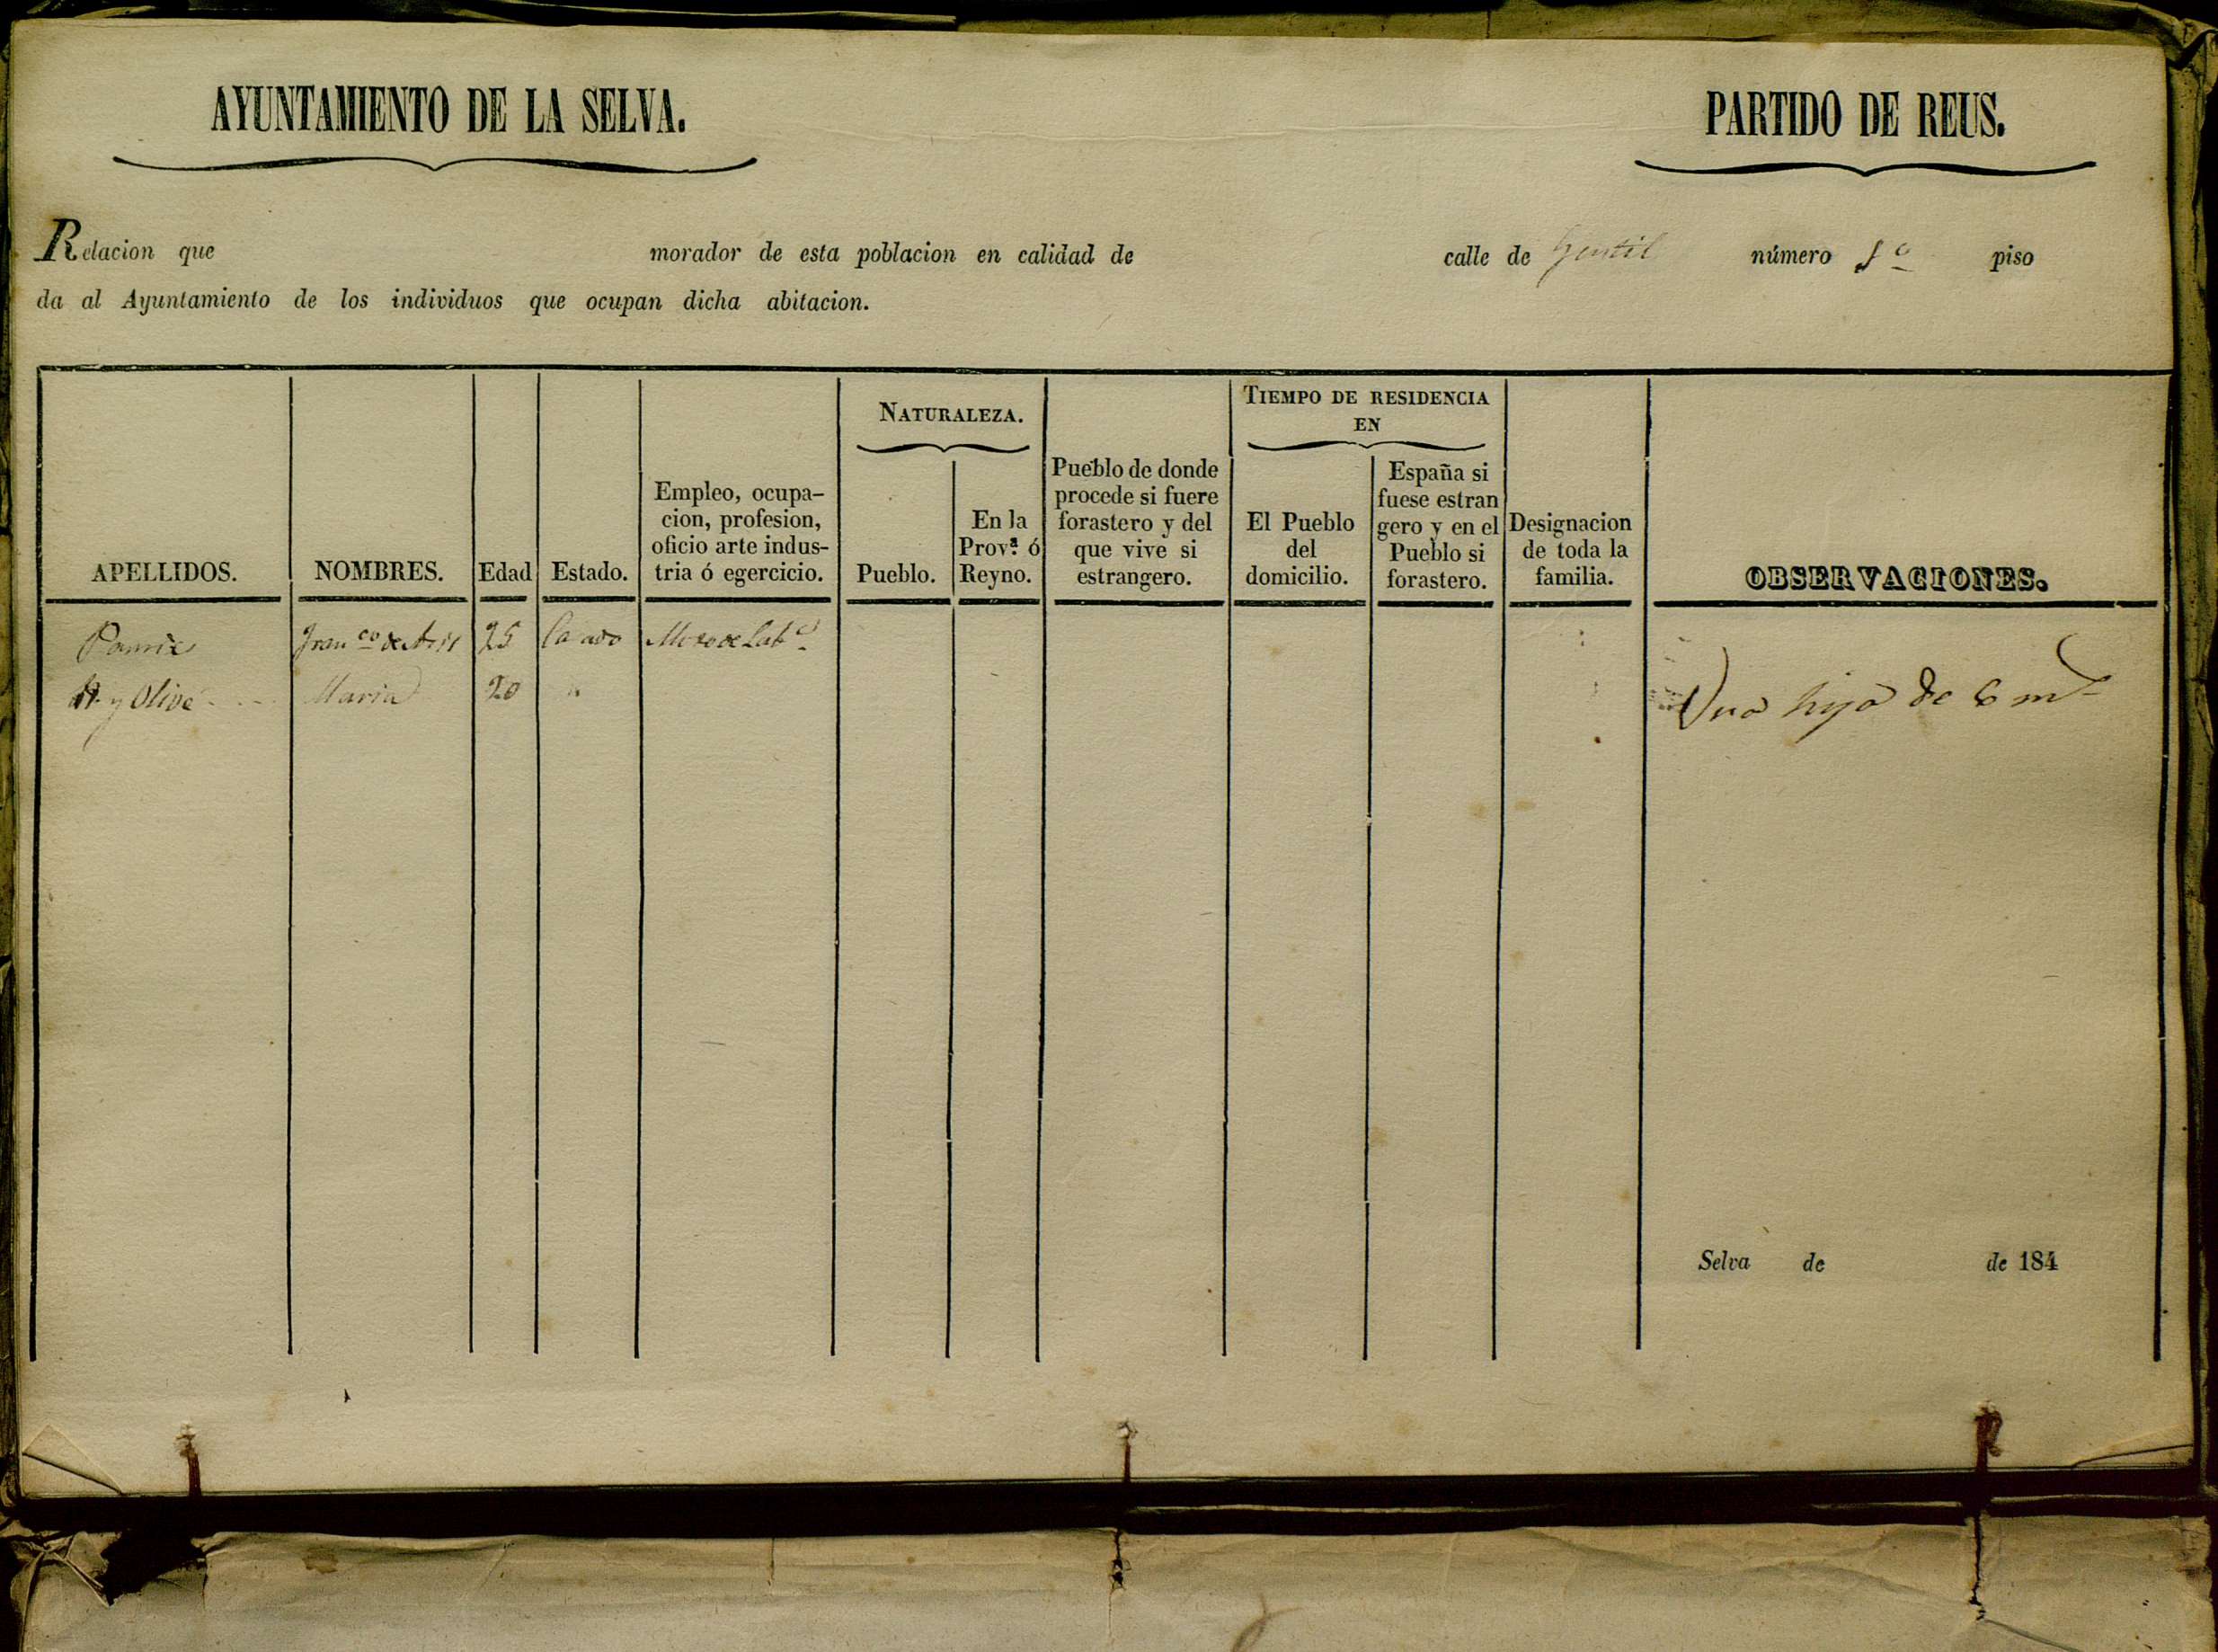 AYUNTAMIENTO DE LA SELVA.
PARTIDO DE REUS.
Relacion que morador de esta poblacion en calidad de calle de Gentil número piso
da al Ayuntamiento de los individuos que ocupan dicha abitacion.
APELLIDOS.
NOMBRES.
Edad
Estado.
Empleo, ocupa-
cion, profesion,
oficio arte indus-
tria ó egercicio.
NATURALEZA.
Pueblo.
En la
Prov.ª ó
Reyno.
Pueblo de donde
procede si fuere
forastero y del
que vive si
estrangero.
TIEMPO DE RESIDENCIA
EN
El Pueblo
del
domicilio.
España si
fuese estran
gero y en el
Pueblo si
forastero.
Designacion
de toda la
familia.
OBSERVACIONES.
Fran.co de 25 Casado Mozo de Lab.r
y Olivé Maria 20 "
Una hija de 6 m.s
Selva de de 184